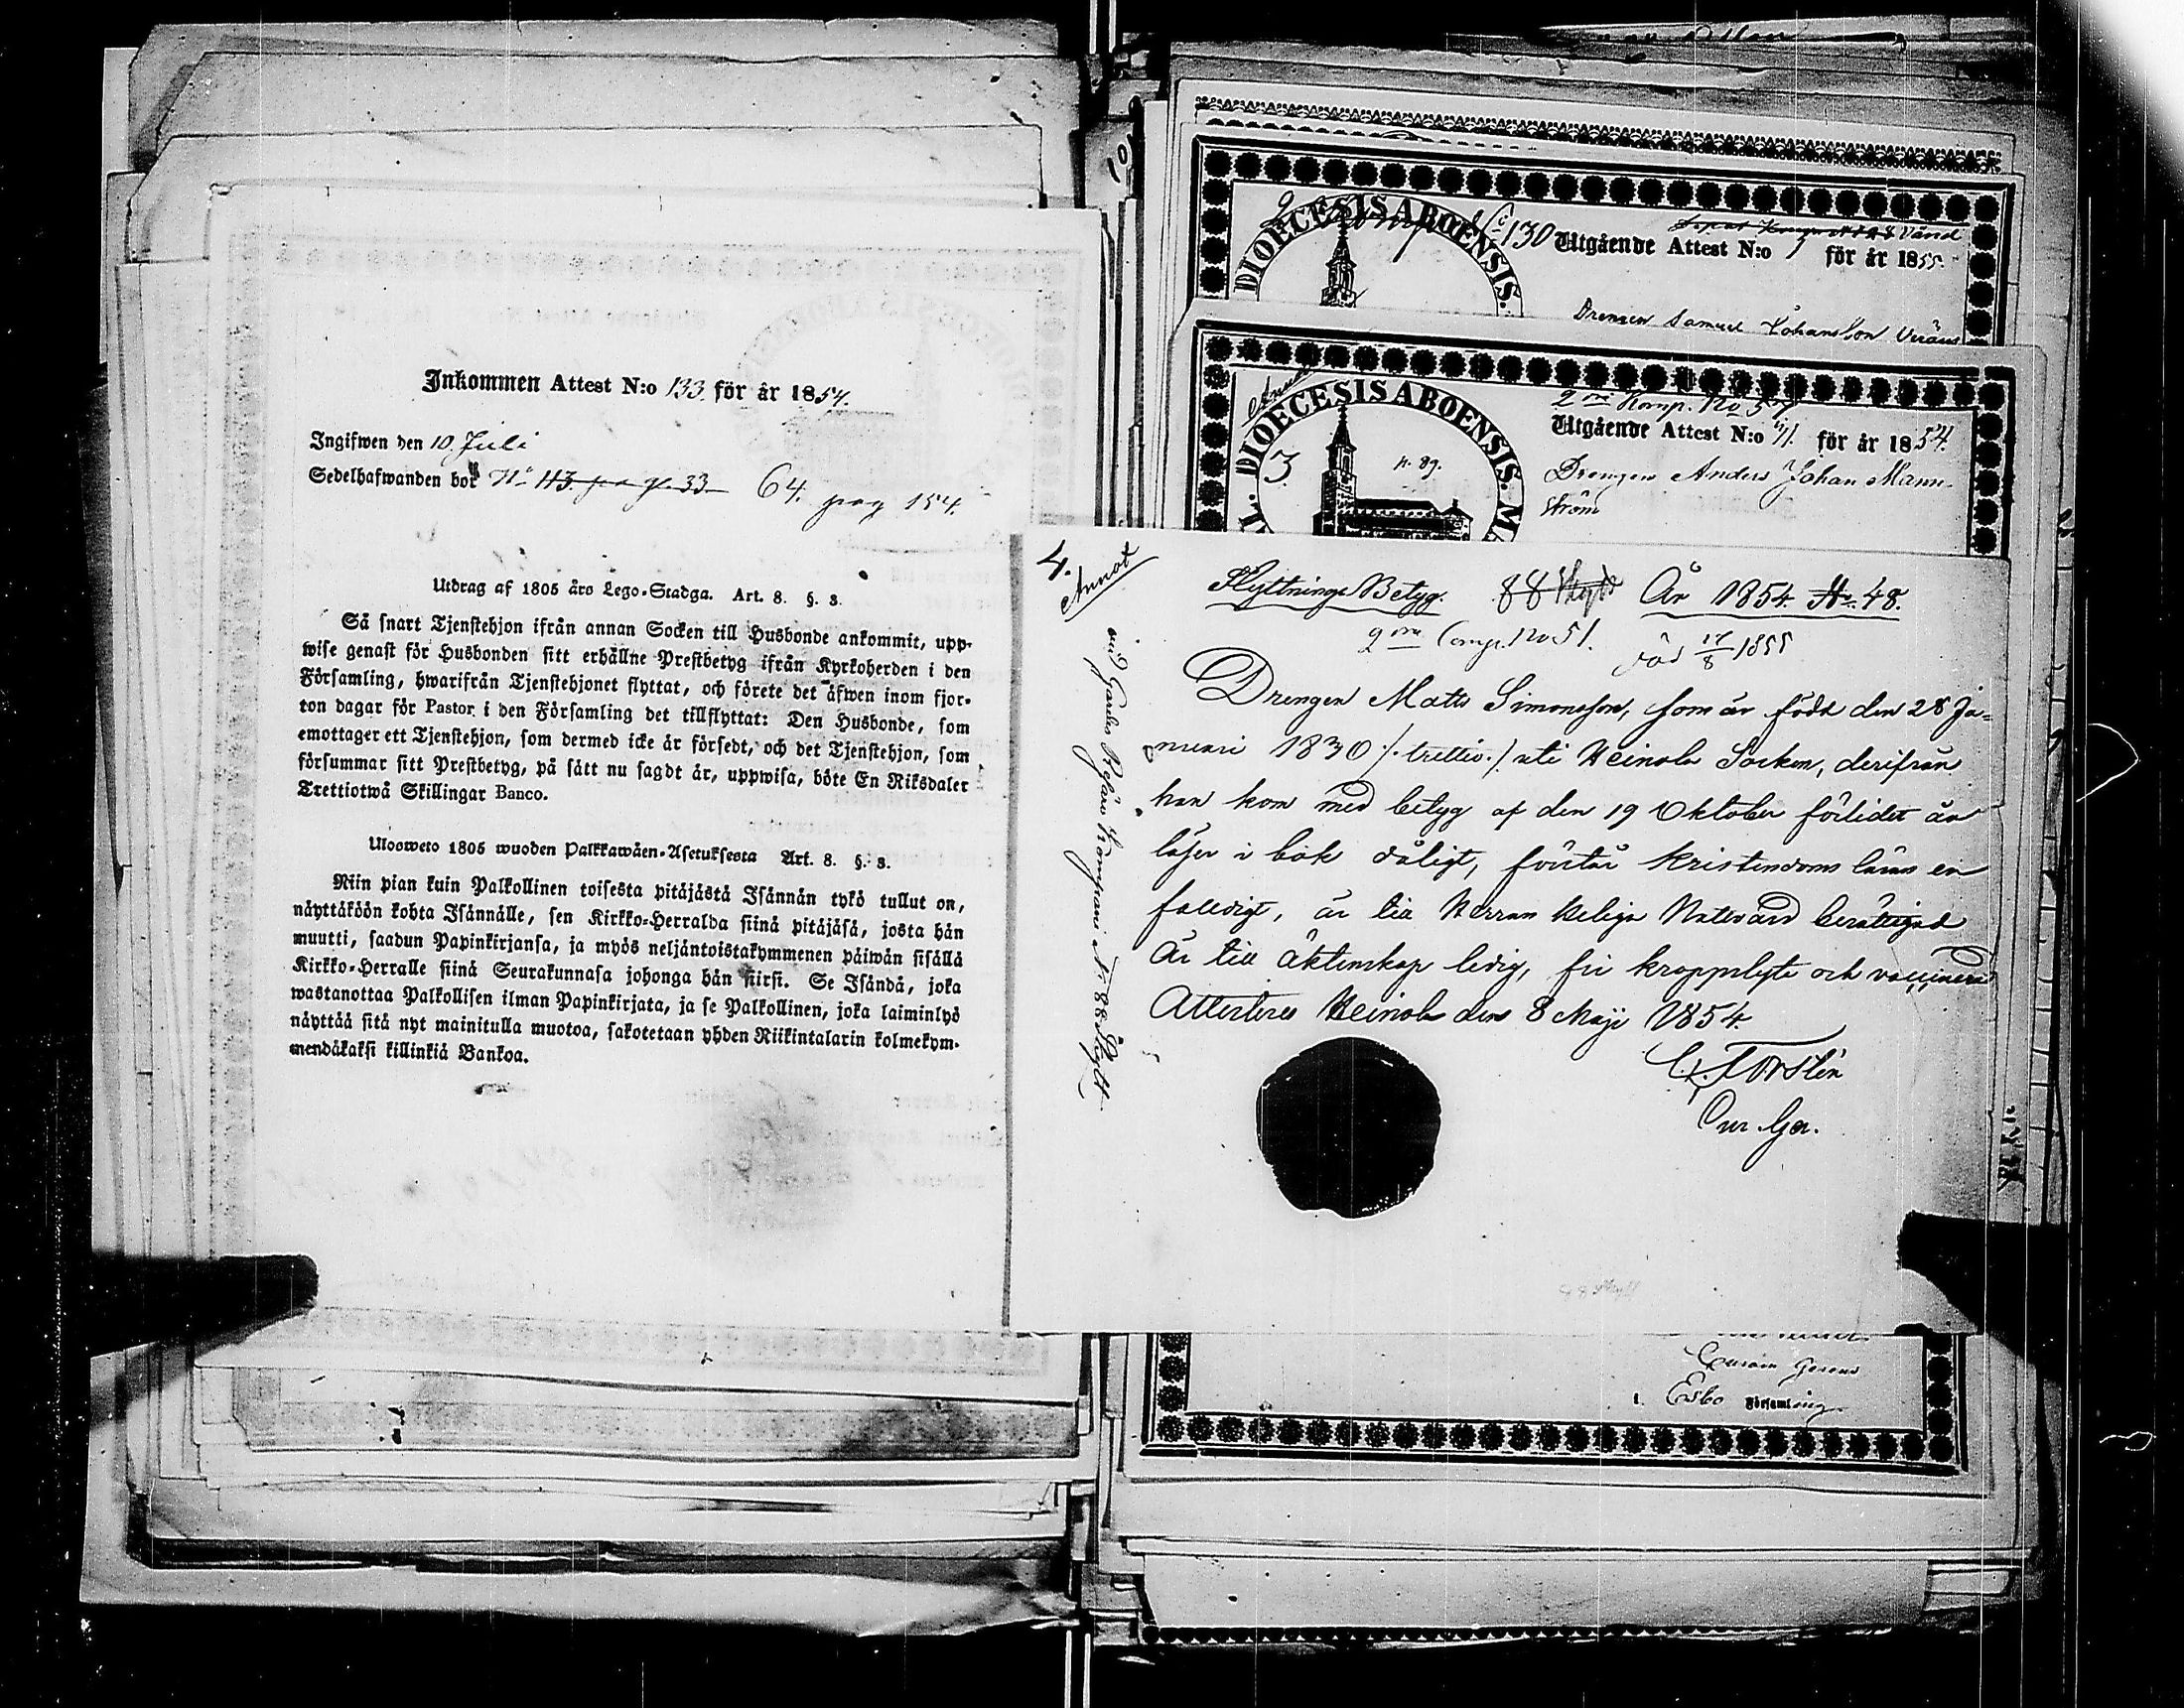 Inkommen Attest N:o 133. för år 1854.
Ingifwen den 10. Juli
Sedelhafwanden bor No 113. pag. 33 64. pag 154.
Utdrag af 1805 års Lego-Stadga. Art. 8. §. 3.
Så snart Tjenstehjon ifrån annan Socken till Husbonde ankommit, upp-
wise genast för Husbonden sitt erhållne Prestbetyg ifrån Kyrkoherden i den
Församling, hwarifrån Tjenstehjonet flyttat, och förete det äfwen inom fjor-
ton dagar för Pastor i den Församling det tillflyttat: Den Husbonde, som
emottager ett Tjenstehjon, som dermed icke är försedt, och det Tjenstehjon, som
försummar sitt Prestbetyg, på sätt nu sagdt är, uppwisa, böte En Riksdaler
Trettiotwå Skillingar Banco.
Ulosweto 1805 wuoden Palkkawäen-Asetuksesta Art. 8. §. 3.
Niin pian kuin Palkollinen toisesta pitäjästä Isännän tykö tullut on,
näyttäköön kohta Isännälle, sen Kirkko-Herralda siinä pitäjäsä, josta hän
muutti, saadun Papinkirjansa, ja myös neljäntoistakymmenen päiwän sisällä
Kirkko-Herralle siinä Seurakunnasa johonga hän siirsi. Se Isändä, joka
wastanottaa Palkollisen ilman Papinkirjata, ja se Palkollinen, joka laiminlyö
näyttää sitä nyt mainitulla muotoa, sakotetaan yhden Riikintalarin kolmekym-
mendäkaksi killinkiä Bankoa.
DIOECESIS ABOENSIS.
130
Utgående Attest N:o 7 för år 1855.
Drengen Samuel Johansson
DIOECESIS ABOENSIS.
3 p. 89.
2 Komp. No 57
Utgående Attest N:o 11. för år 1854.
Drengen Anders Johan Mann-
ström
4.
Annot
Flyttnings Betyg. 88 Skytt År 1854. No. 48.
2 Comp. No 51. död 17/8 1855
Drengen Matts Simonsson, som är född den 28 Ja-
nuari 1830 /. trettio./ uti Heinola Socken, derifrån
han kom med betyg af den 19 Oktober förlidet år
läser i bok dåligt, förstår kristendoms läran en
faldigt, är till Herrans Heliga Nattvard berättigad
Är till äktenskap ledig, fri kroppslyte och vaccinerad
Attesteras Heinola den 8 Maji 1854.
C. Forstén
Cur. Ger.
vid Gardes Reserv Kompani No 88 Skytt
88 Skytt
Curam gerens
i. Esbo Församling